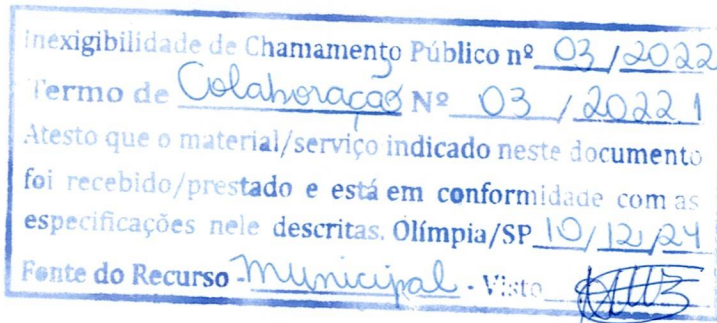 Inexigibilidade de Chamamento Público nº 03/2022
Termo de Colaboração Nº 03 / 2022
Atesto que o material/serviço indicado neste documento
foi recebido/prestado e está em conformidade com as
especificações nele descritas. Olímpia/SP 10/12/24
Fonte do Recurso - Municipal - Visto